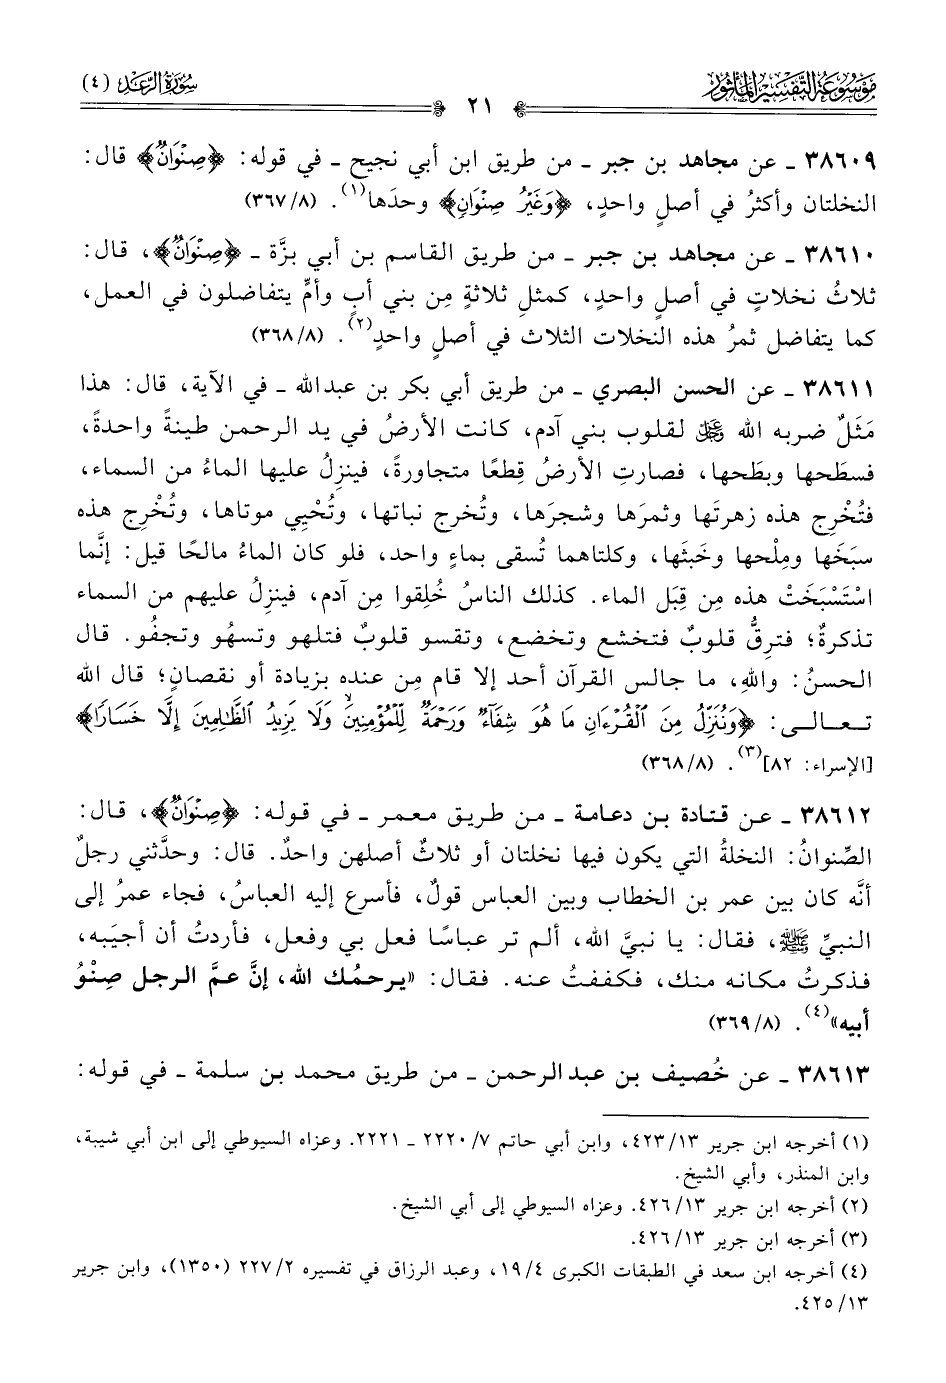 مَوْسُوعَةُ التَّفْسِيرِ المَأْثُور
سُورَةُ الرَّعْدِ (٤)
٢١
٣٨٦٠٩ ـ عن مجاهد بن جبر ـ من طريق ابن أبي نجيح ـ في قوله: ﴿صِنْوَانٌ﴾ قال:
النخلتان وأكثرُ في أصلٍ واحدٍ، ﴿وَغَيْرُ صِنْوَانٍ﴾ وحدَها(١). (٣٦٧/٨)
٣٨٦١٠ ـ عن مجاهد بن جبر ـ من طريق القاسم بن أبي بزَّة ـ ﴿صِنْوَانٌ﴾، قال:
ثلاثُ نخلاتٍ في أصلٍ واحدٍ، كمثلِ ثلاثةٍ مِن بني أبٍ وأمٍّ يتفاضلون في العمل،
كما يتفاضل ثمرُ هذه النخلات الثلاث في أصلٍ واحدٍ(٢). (٣٦٨/٨)
٣٨٦١١ ـ عن الحسن البصري ـ من طريق أبي بكر بن عبدالله ـ في الآية، قال: هذا
مَثَلٌ ضربه الله ﷿ لقلوب بني آدم، كانت الأرضُ في يد الرحمن طينةً واحدةً،
فسطَحها وبطَحها، فصارتِ الأرضُ قِطعًا متجاورةً، فينزِلُ عليها الماءُ من السماء،
فتُخْرِج هذه زهرتَها وثمرَها وشجرَها، وتُخرج نباتها، وتُحْيِي موتاها، وتُخْرِج هذه
سبَخَها ومِلْحها وخَبثَها، وكلتاهما تُسقى بماءٍ واحد، فلو كان الماءُ مالحًا قيل: إنَّما
اسْتَسْبَخَتْ هذه مِن قِبَل الماء. كذلك الناسُ خُلِقوا مِن آدم، فينزِلُ عليهم من السماء
تذكرةٌ؛ فترِقُّ قلوبٌ فتخشع وتخضع، وتقسو قلوبٌ فتلهو وتسهُو وتجفُو. قال
الحسنُ: واللهِ، ما جالس القرآن أحد إلا قام مِن عنده بزيادة أو نقصانٍ؛ قال الله
تعالى: ﴿وَنُنَزِّلُ مِنَ ٱلْقُرْءَانِ مَا هُوَ شِفَآءٌ وَرَحْمَةٌ لِّلْمُؤْمِنِينَ ۙ وَلَا يَزِيدُ ٱلظَّٰلِمِينَ إِلَّا خَسَارًا﴾
[الإسراء: ٨٢](٣). (٣٦٨/٨)
٣٨٦١٢ ـ عن قتادة بن دعامة ـ من طريق معمر ـ في قوله: ﴿صِنْوَانٌ﴾، قال:
الصِّنوانُ: النخلةُ التي يكون فيها نخلتان أو ثلاثٌ أصلهن واحدٌ. قال: وحدَّثني رجلٌ
أنَّه كان بين عمر بن الخطاب وبين العباس قولٌ، فأسرع إليه العباسُ، فجاء عمرُ إلى
النبيِّ ﷺ، فقال: يا نبيَّ الله، ألم تر عباسًا فعل بي وفعل، فأردتُ أن أجيَبه،
فذكرتُ مكانه منك، فكففتُ عنه. فقال: «يرحمُك الله، إنَّ عمَّ الرجل صِنْوُ
أبيه»(٤). (٣٦٩/٨)
٣٨٦١٣ ـ عن خُصيف بن عبد الرحمن ـ من طريق محمد بن سلمة ـ في قوله:
(١) أخرجه ابن جرير ٤٢٣/١٣، وابن أبي حاتم ٢٢٢٠/٧ ـ ٢٢٢١. وعزاه السيوطي إلى ابن أبي شيبة،
وابن المنذر، وأبي الشيخ.
(٢) أخرجه ابن جرير ٤٢٦/١٣. وعزاه السيوطي إلى أبي الشيخ.
(٣) أخرجه ابن جرير ٤٢٦/١٣.
(٤) أخرجه ابن سعد في الطبقات الكبرى ١٩/٤، وعبد الرزاق في تفسيره ٢٢٧/٢ (١٣٥٠)، وابن جرير
٤٢٥/١٣.